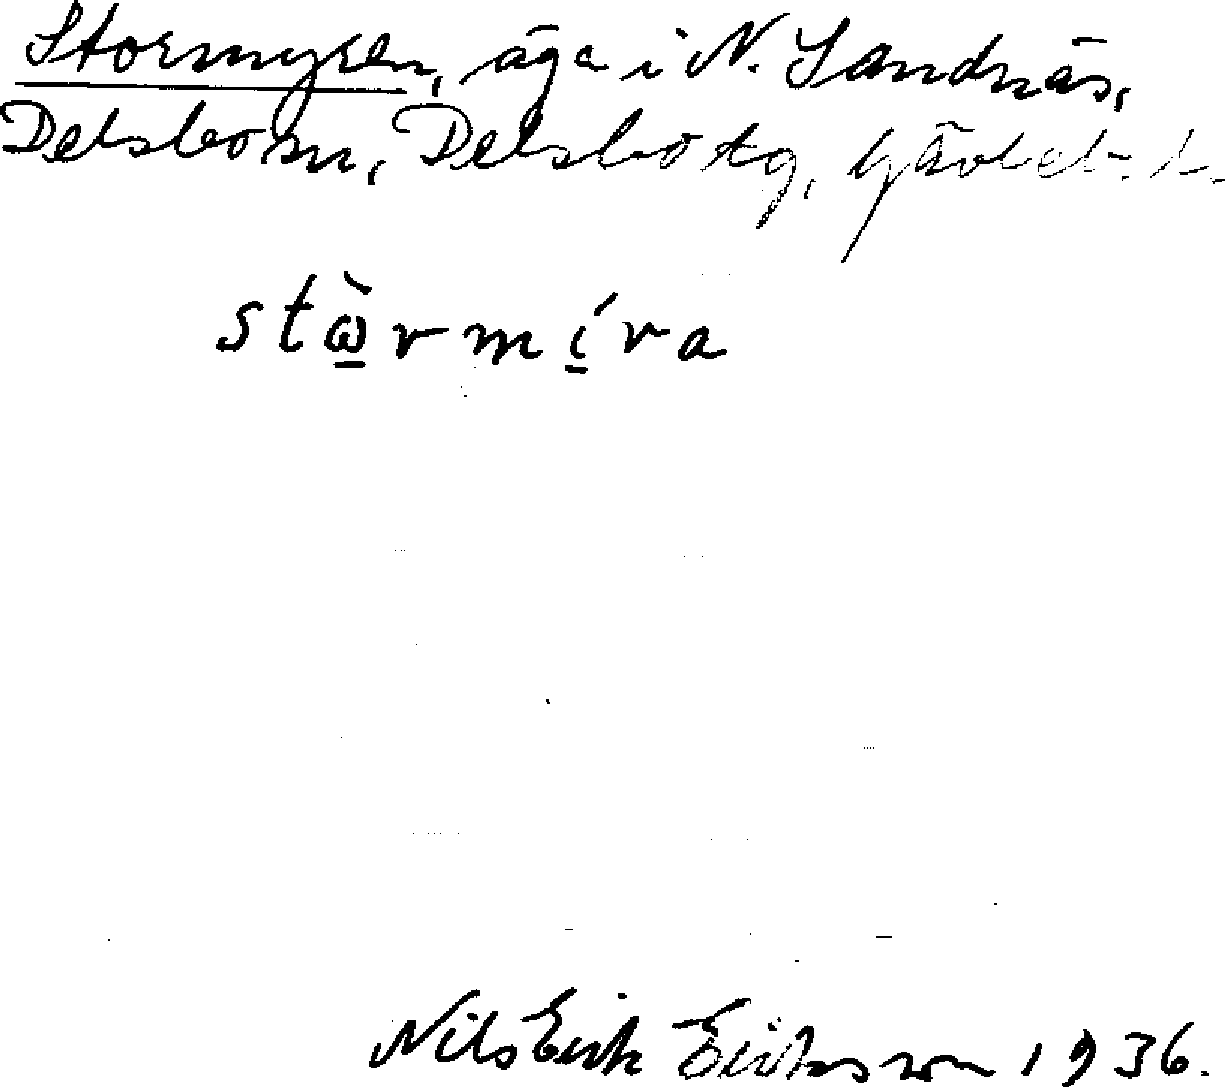 Stormyren, äga i N. Sandnäs,
Delsbo sn, Delsbo tg, Gävleb. l.
stὼ̲rmí̲ra
Nils Erik Eriksson 1936.